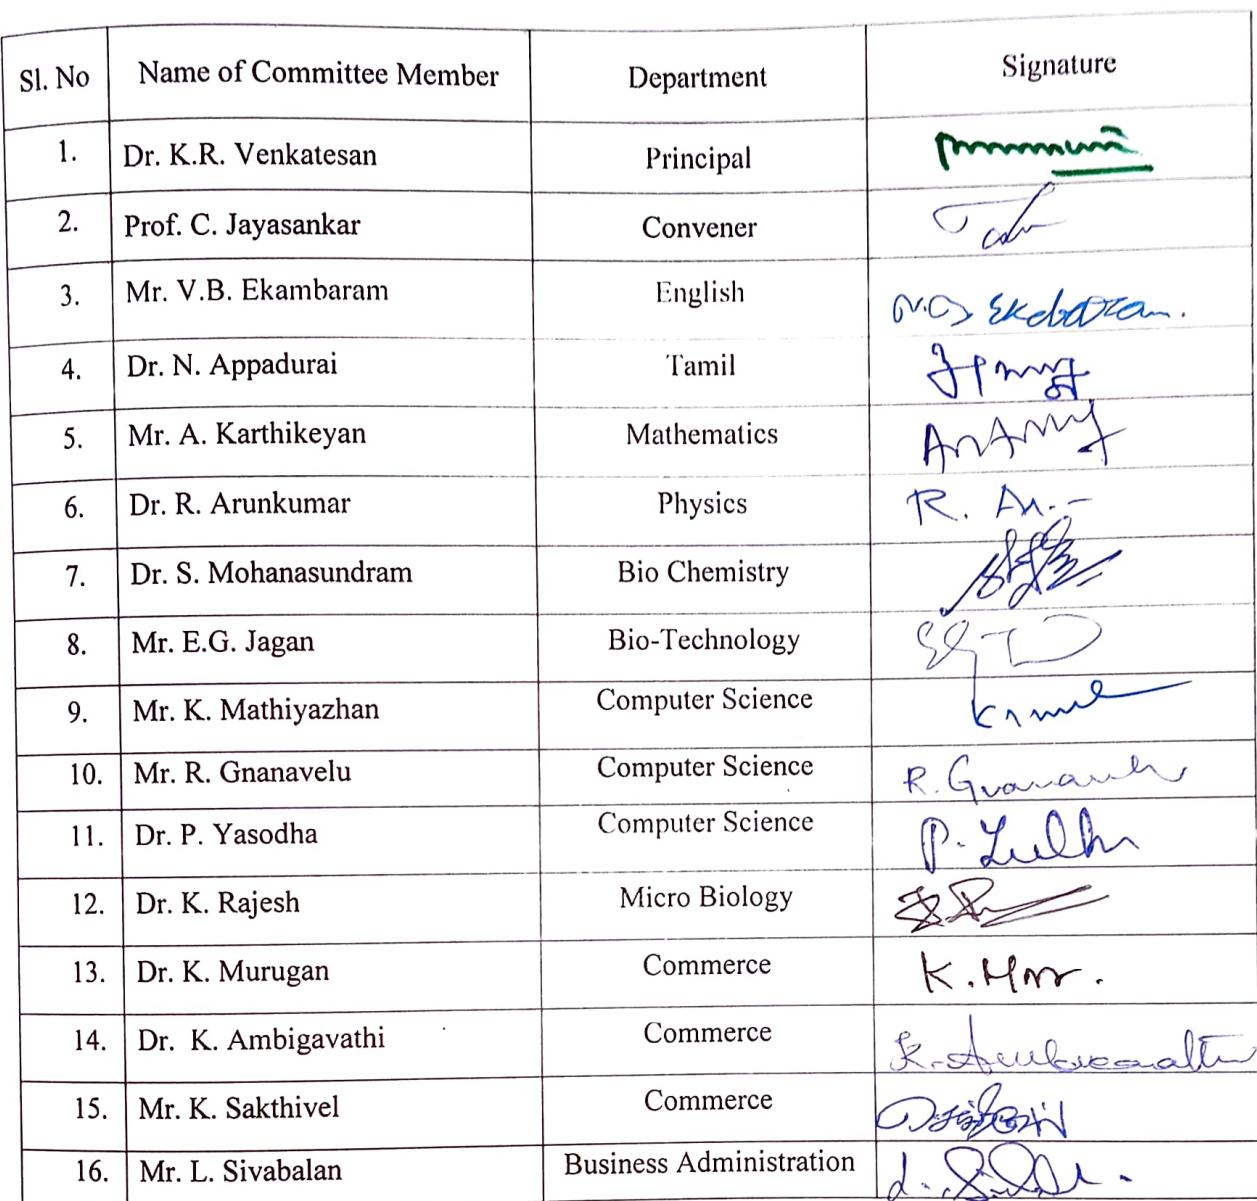 Sl. No Name of Committee Member Department Signature
1. Dr. K.R. Venkatesan Principal
2. Prof. C. Jayasankar Convener
3. Mr. V.B. Ekambaram English
4. Dr. N. Appadurai Tamil
5. Mr. A. Karthikeyan Mathematics
6. Dr. R. Arunkumar Physics R.
7. Dr. S. Mohanasundram Bio Chemistry
8. Mr. E.G. Jagan Bio-Technology
9. Mr. K. Mathiyazhan Computer Science
10. Mr. R. Gnanavelu Computer Science R.
11. Dr. P. Yasodha Computer Science P.
12. Dr. K. Rajesh Micro Biology
13. Dr. K. Murugan Commerce K.
14. Dr. K. Ambigavathi Commerce K.
15. Mr. K. Sakthivel Commerce
16. Mr. L. Sivabalan Business Administration